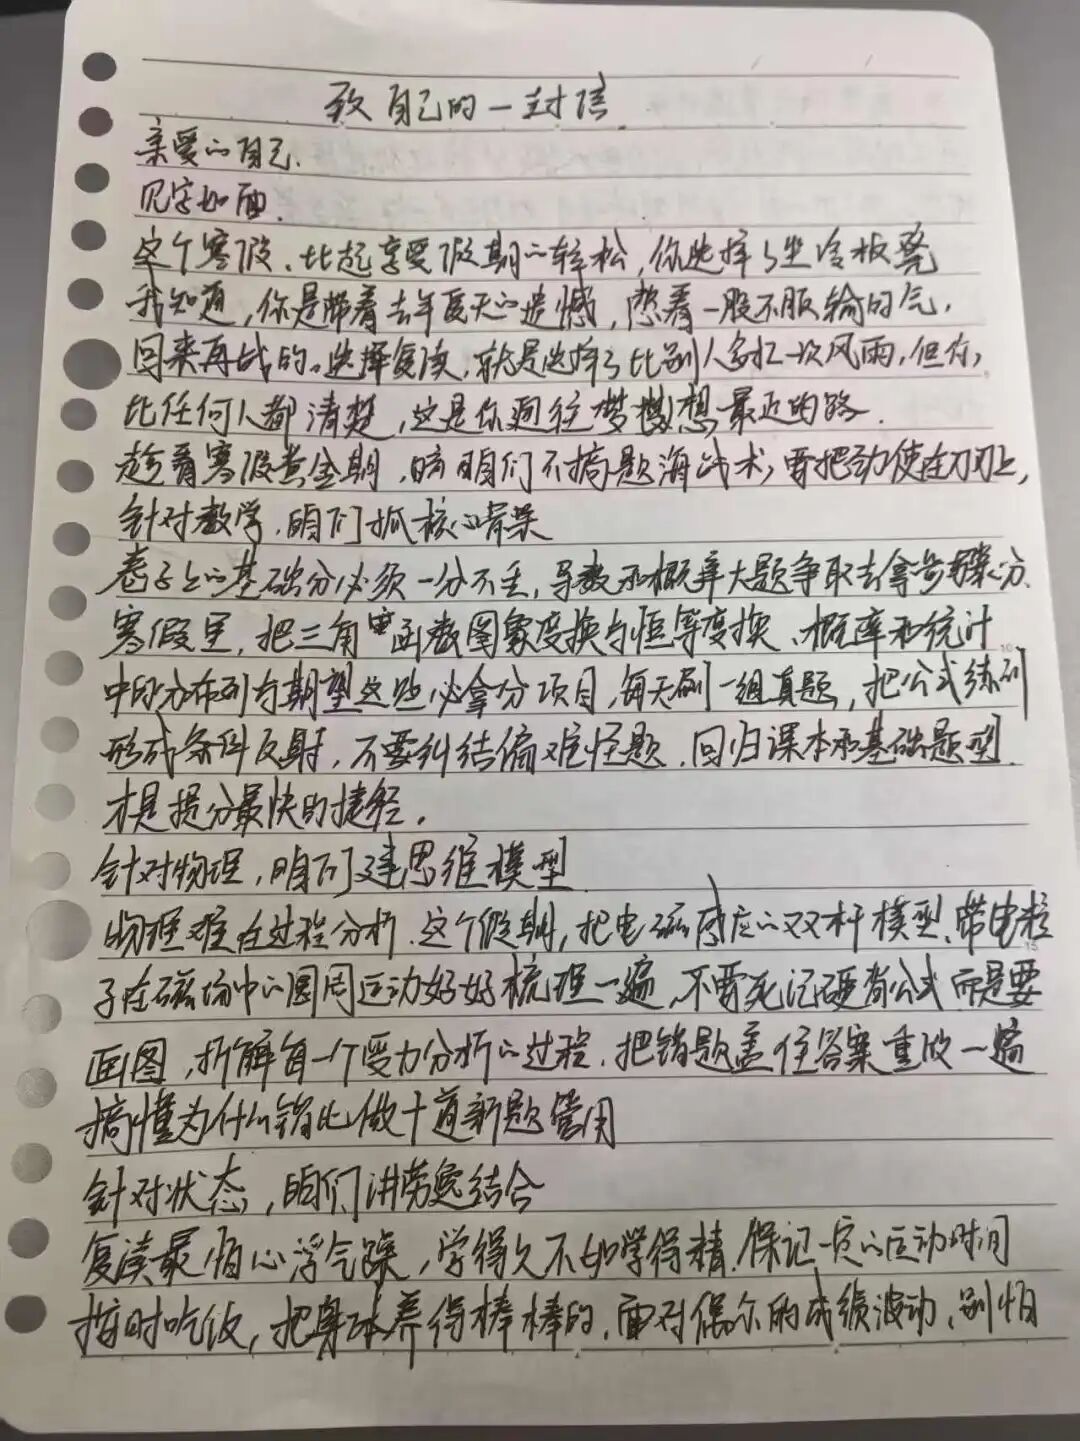 致自己的一封信
亲爱的自己.
见字如面.
这个寒假、比起享受假期的轻松,你选择了坐冷板凳
我知道,你是带着去年夏天的遗憾,憋着一股不服输的气,
回来再战的。选择复读,就是选择了比别人多扛一次风雨,但你,
比任何人都清楚,这是你通往梦想最近的路.
趁着寒假黄金期,咱们不搞题海战术,要把劲使在刀刃上,
针对数学,咱们抓核心骨架
卷子上的基础分必须一分不丢,导数和概率大题争取去拿步骤分.
寒假里,把三角函数图象变换与恒等变换、概率和统计
中的分布列与期望这些必拿分项目,每天刷一组真题,把公式练到
形成条件反射,不要纠结偏难怪题.回归课本和基础题型.
才是提分最快的捷径.
针对物理,咱们建思维模型.
物理难在过程分析.这个假期,把电磁感应的双杆模型、带电粒
子在磁场中的圆周运动好好梳理一遍,不要死记硬背公式而是要
画图,拆解每一个受力分析的过程.把错题盖住答案重做一遍
搞懂为什么错比做十道新题管用
针对状态,咱们讲劳逸结合
复读最怕心浮气躁,学得久不如学得精.保证一定的运动时间
按时吃饭,把身体养得棒棒的,面对偶尔的成绩波动,别怕